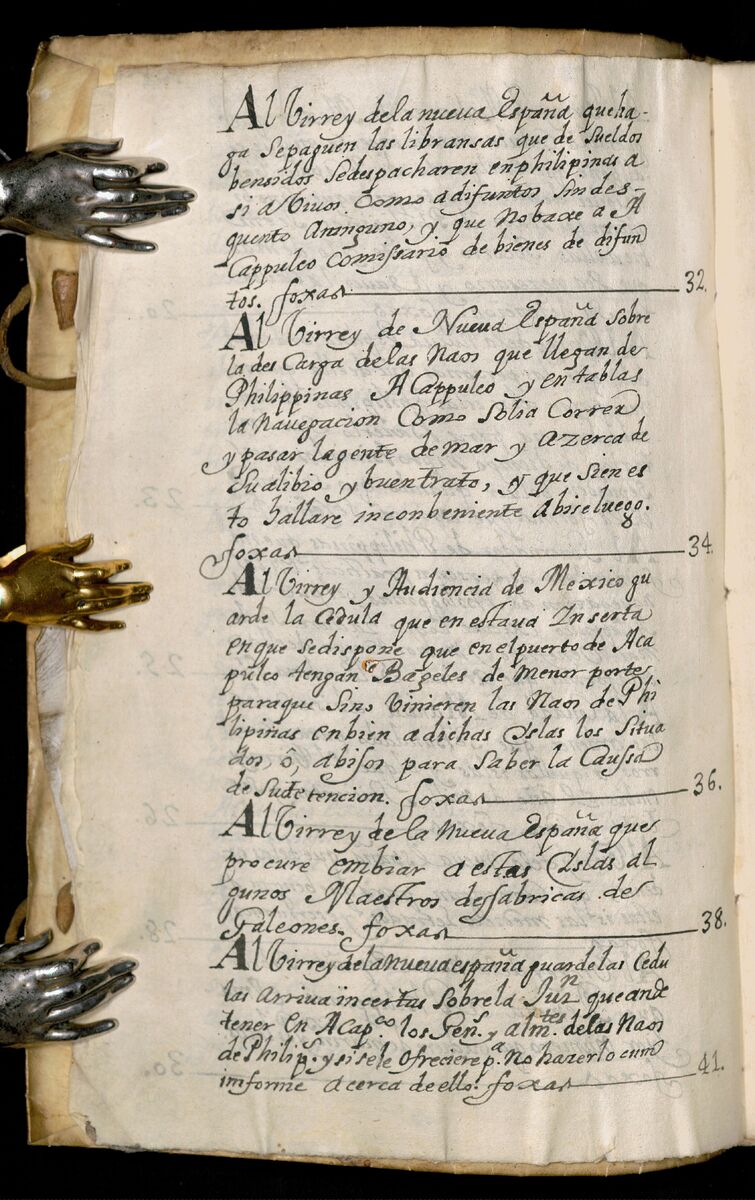 Al Virrey dela nueva España que ha-
ga sepaguen las libransas que de sueldos
bensidos sedespacharen enphilipinas a
si a Vivos Como a difuntos sin des-
quento Aninguno, y que no baxe a A
Cappulco Comissario de bienes de difun
tos. foxas 32.
Al Virrey de Nueva España sobre
la des Carga de las Naos que llegan de
Philippinas A Cappulco y en tablas
la navegacion Como solia Correr
y pasar lagente de mar y azerca de
su alibio y buen trato, y que si en es
to hallare inconbeniente abise luego.
foxas 34.
Al Virrey y Audiencia de Mexico gu
arde la Cedula que en esta va Inserta
en que se dispone que en el puerto de Aca
pulco tengan Bageles de menor porte
paraque sino vinieren las Naos de Phi
lipinas enbien a dichas Yslas los situa
dos, ô, abisos para saber la Caussa
de su detencion. foxas 36.
Al Virrey de la nueva España que
procure embiar a estas Yslas al
gunos Maestros de fabricas de
Galeones. foxas 38.
Al Virrey dela nueva españa guarde las Cedu
las arriva incertas sobre la Jurn que an de
tener en Acapco los Gens. y almtes. de las Naos
de Philips. y si se le ofreciere pa. No hazerlo cum
imforme acerca de ello. foxas 41.